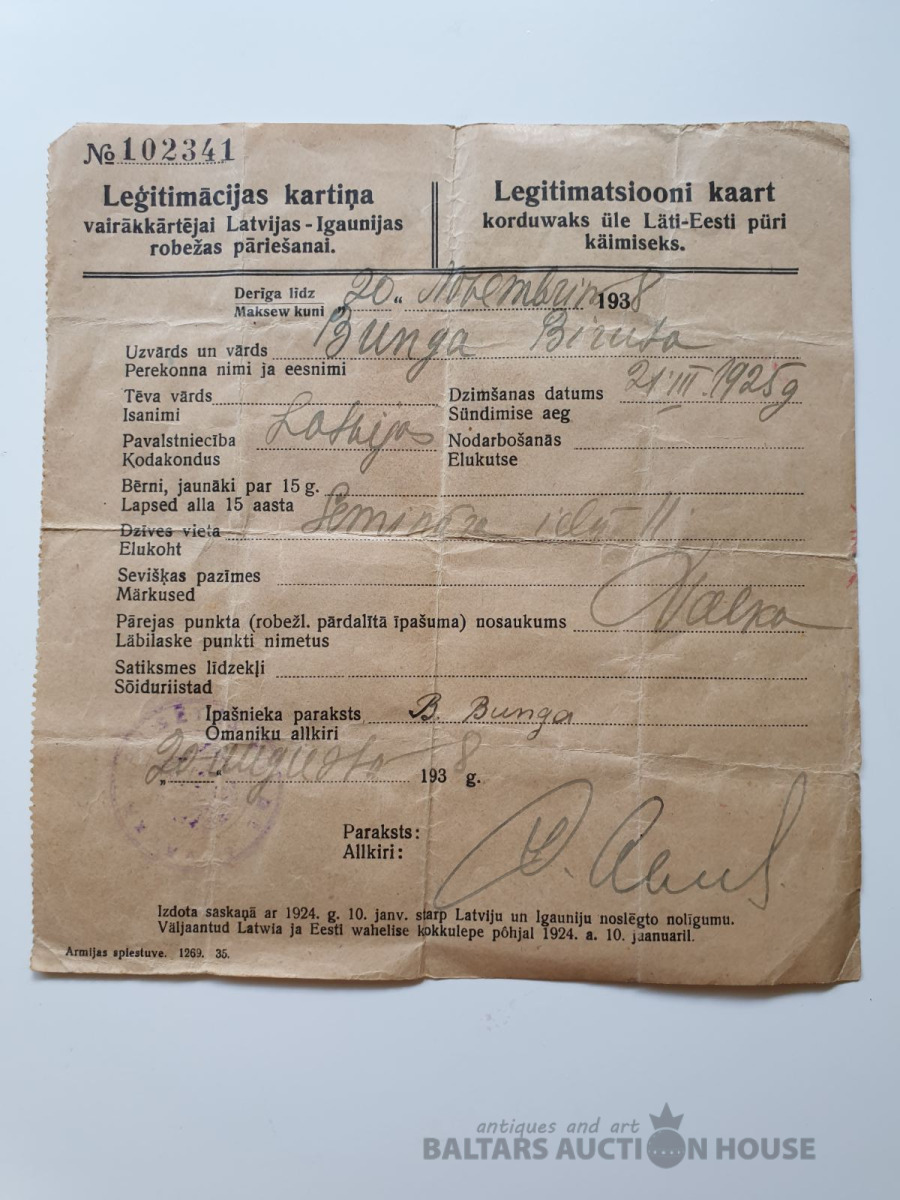 № 102341
Leģitimācijas kartiņa
vairākkārtējai Latvijas-Igaunijas
robežas pāriešanai.
Legitimatsiooni kaart
korduwaks üle Läti-Eesti püri
käimiseks.
Derīga līdz „20“ Novembrim 1938
Maksew kuni
Uzvārds un vārds Bunga Biruta
Perekonna nimi ja eesnimi
Tēva vārds
Isanimi
Dzimšanas datums 21 III. 1925 g
Sündimise aeg
Pavalstniecība Latvijas
Kodakondus
Nodarbošanās
Elukutse
Bērni, jaunāki par 15 g.
Lapsed alla 15 aasta
Dzīves vieta Semināra ielā 11.
Elukoht
Sevišķas pazīmes
Märkused
Pārejas punkta (robežl. pārdalītā īpašuma) nosaukums Valka
Läbilaske punkti nimetus
Satiksmes līdzekļi
Sõiduriistad
Īpašnieka paraksts B. Bunga
Omaniku allkiri
„20“ augusta 1938 g.
Paraksts:
Allkiri:
Izdota saskaņā ar 1924. g. 10. janv. starp Latviju un Igauniju noslēgto nolīgumu.
Väljaantud Latwia ja Eesti wahelise kokkulepe põhjal 1924. a. 10. jaanuaril.
Armijas spiestuve. 1269. 35.
antiques and art
BALTARS AUCTION HOUSE